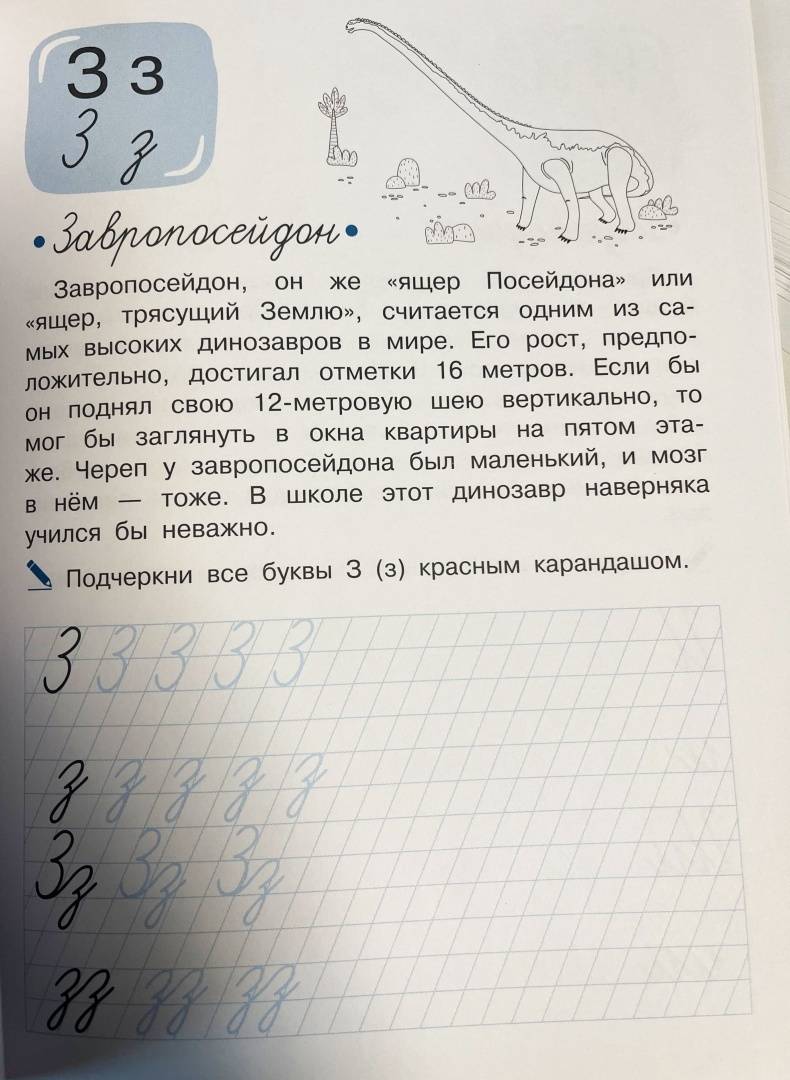 З з
З з
Завропосейдон
Завропосейдон, он же «ящер Посейдона» или
«ящер, трясущий Землю», считается одним из са-
мых высоких динозавров в мире. Его рост, предпо-
ложительно, достигал отметки 16 метров. Если бы
он поднял свою 12-метровую шею вертикально, то
мог бы заглянуть в окна квартиры на пятом эта-
же. Череп у завропосейдона был маленький, и мозг
в нём — тоже. В школе этот динозавр наверняка
учился бы неважно.
Подчеркни все буквы З (з) красным карандашом.
З З З З З
з з з з з
Зз Зз Зз
зз зз зз